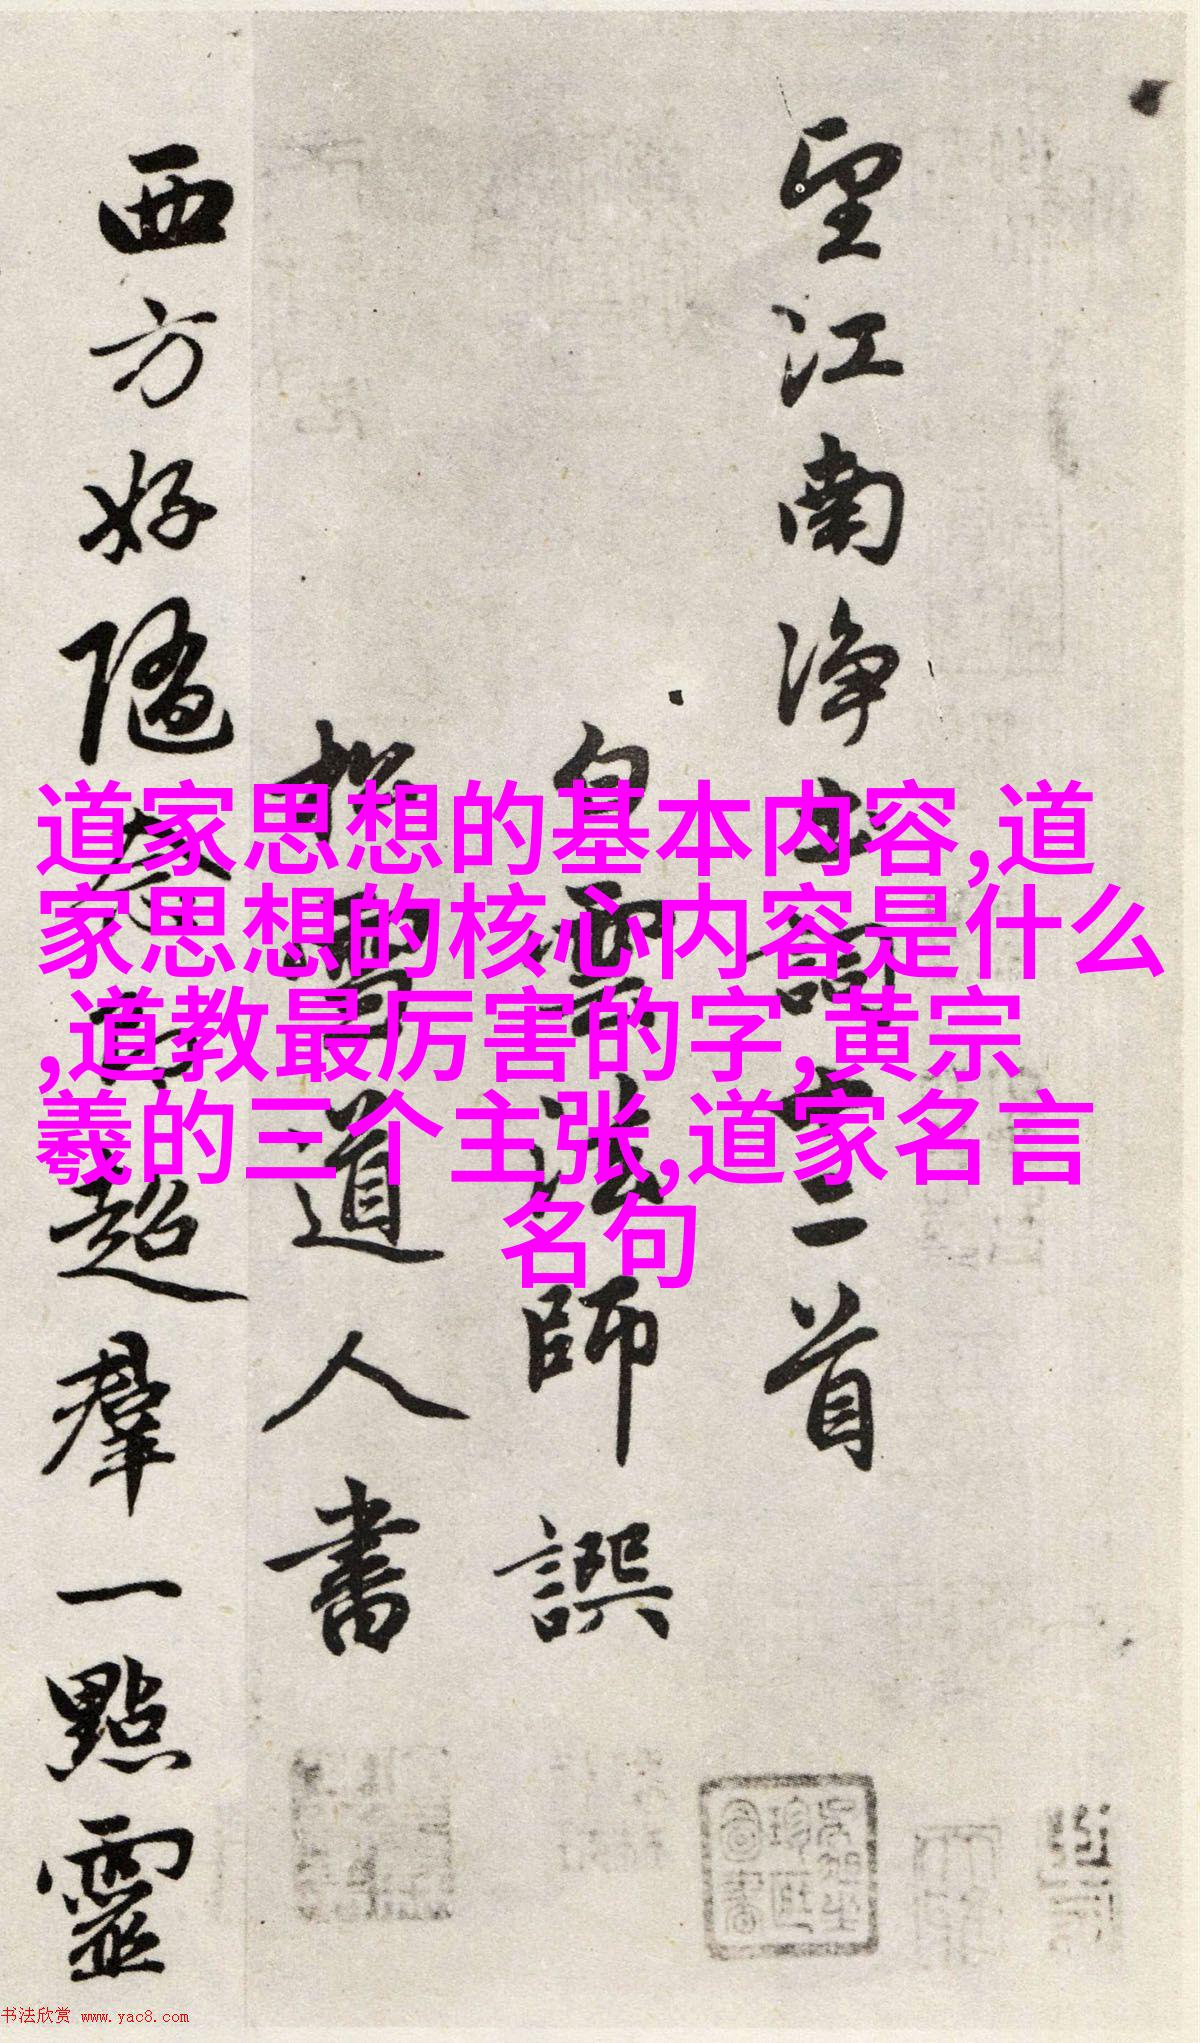 望江南净土詞十二首
白雲法師譔
松雪道人書
西方好隨念即超羣一點靈
道家思想的基本内容,道
家思想的核心内容是什么
,道教最厉害的字,黄宗
羲的三个主张,道家名言
名句
书法欣赏 www.yac8.com